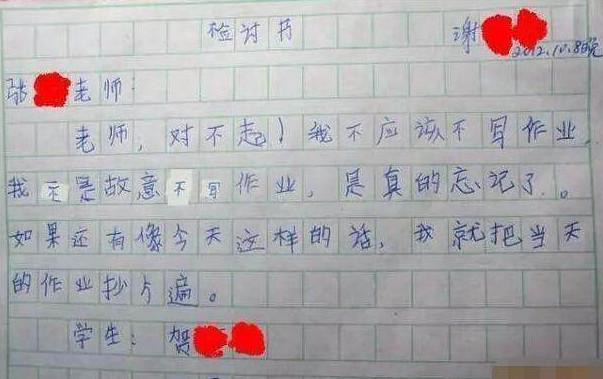 检讨书 谢
2012.10.8晚
张 老师:
老师,对不起!我不应该不写作业
我不是故意不写作业,是真的忘记了。
如果还有像今天这样的话,我就把当天
的作业抄5遍。
学生:贺